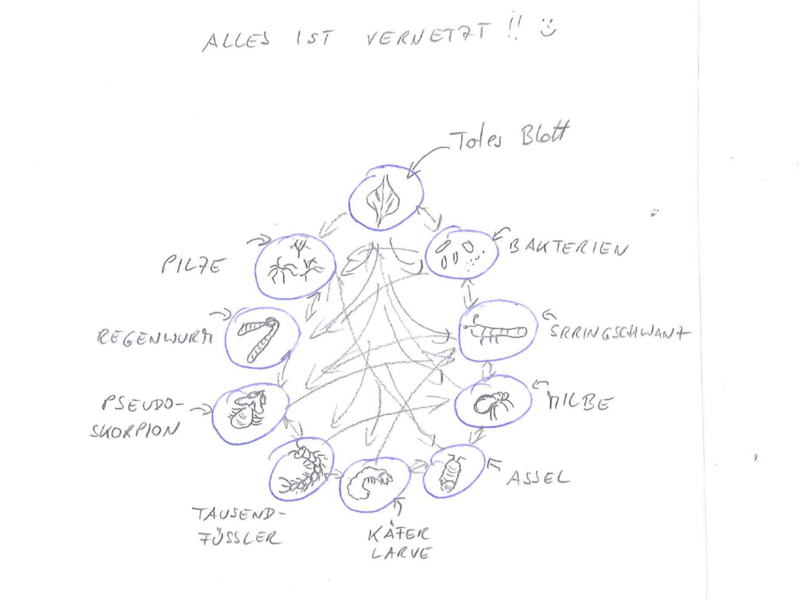 ALLES IST VERNETZT !! :)
Totes Blatt
PILZE
BAKTERIEN
REGENWURM
SPRINGSCHWANZ
PSEUDO-
SKORPION
MILBE
ASSEL
TAUSEND-
FÜSSLER
KÄFER
LARVE